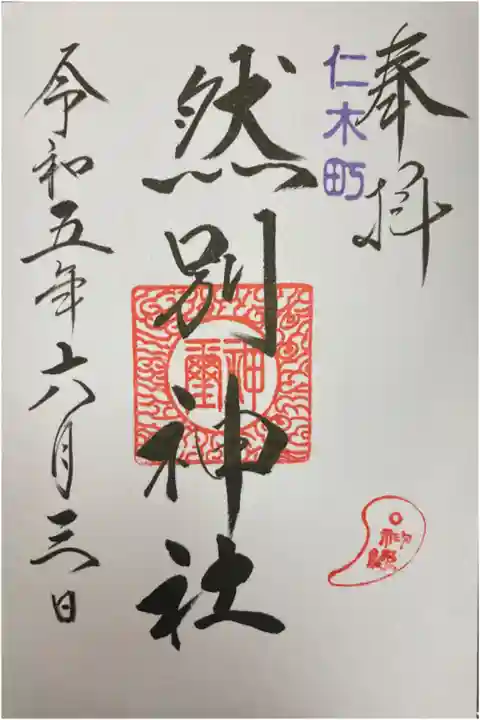 奉拝
仁木町
然別神社
神璽
御縁
令和五年六月三日